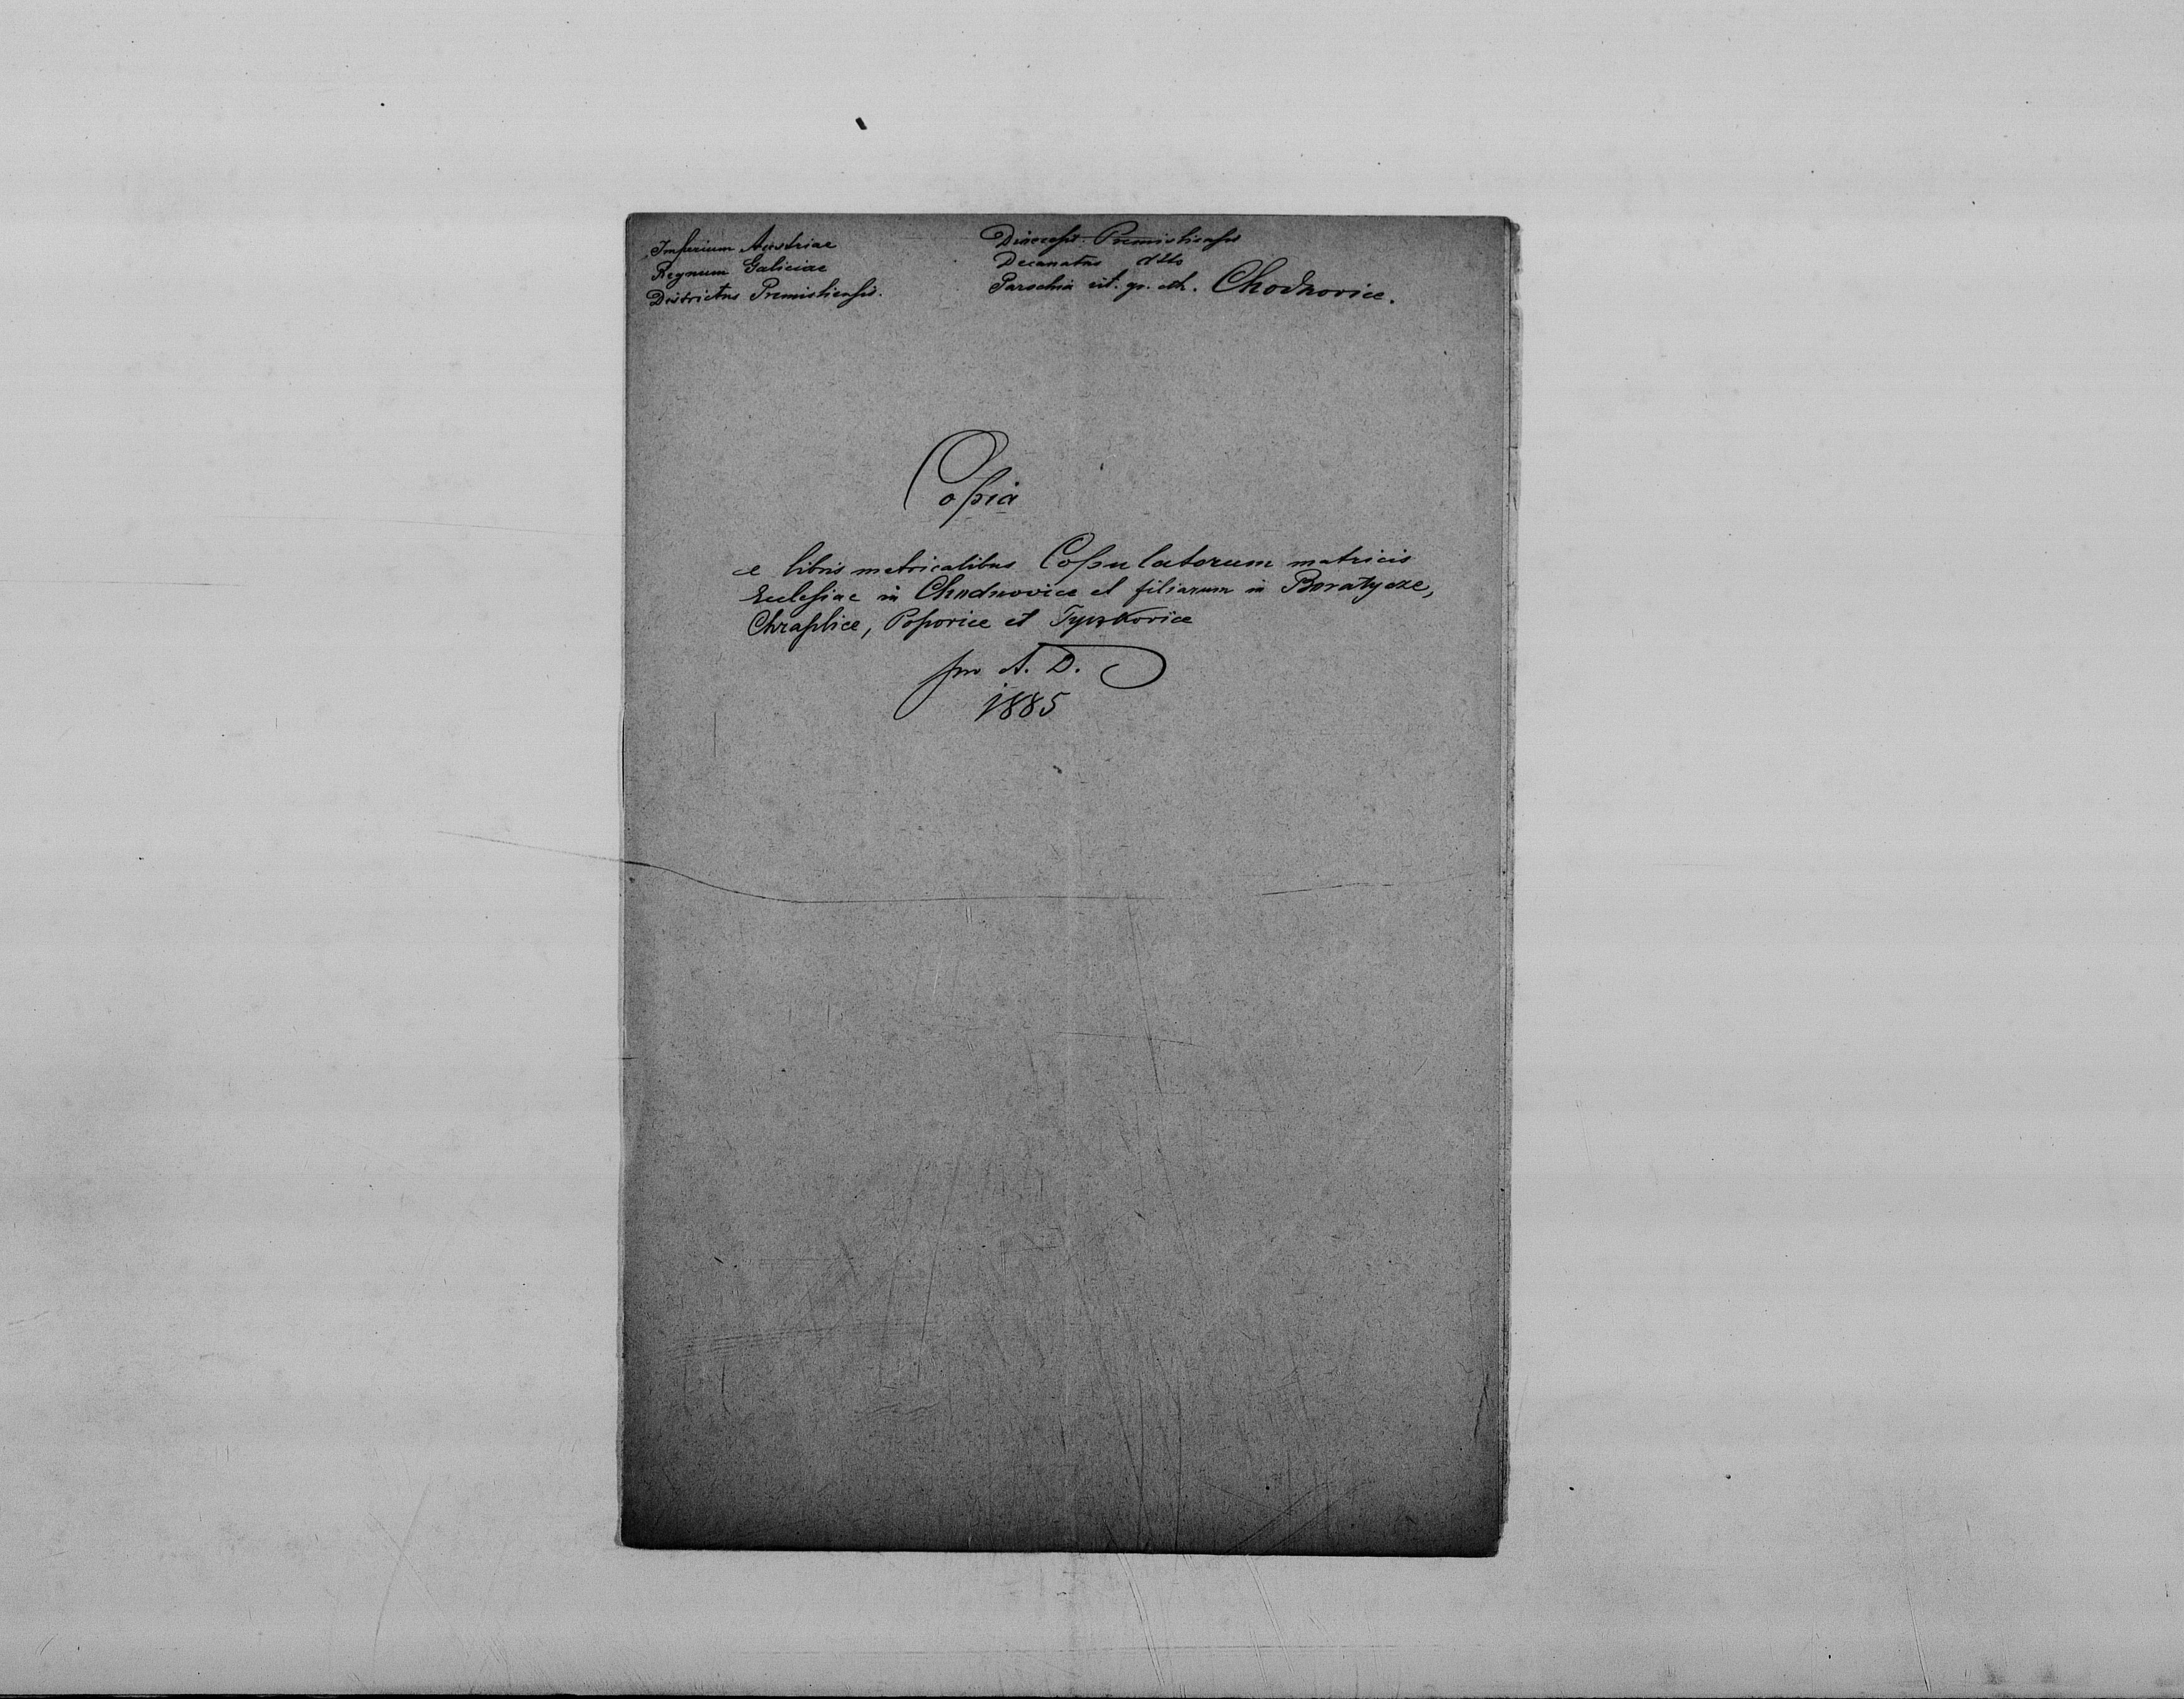 Imperium Austriae
Regnum Galiciae
Districtus Premisliensis.
Dioecesis Premisliensis
Decanatus dtto
Parochia rit. gr. cth. Chodnovice.
Copia
e libris metricalibus Copulatorum matricis
Ecclesiae in Chodnovice et filiarum in Boratycze,
Chraplice, Popovice et Tyszkovice
pro A. D.
1885